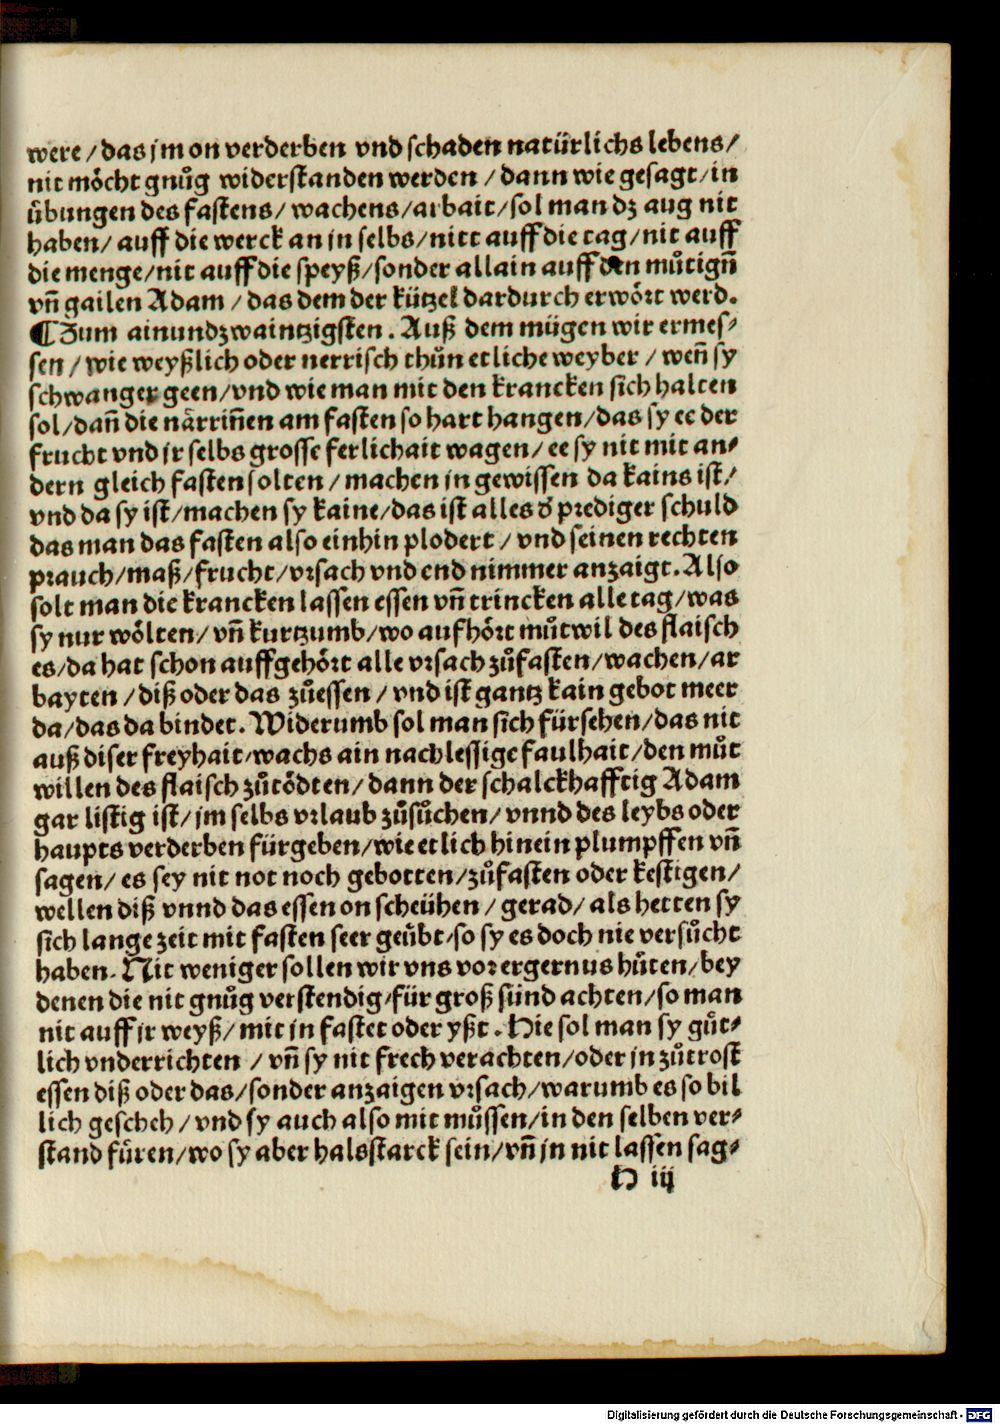 were/das jm on verderben vnd schaden natürlichs lebens/
nit möcht gnuͦg widerstanden werden/dann wie gesagt/in
uͤbungen des fastens/wachens/arbait/sol man dz aug nit
haben/auff die werck an jn selbs/nitt auff die tag/nit auff
die menge/nit auff die speyß/sonder allain auff den muͦtigñ
vñ gailen Adam/das dem der kützel dardurch erwoͤrt werd.
¶Zum ainundzwaintzigsten. Auß dem mügen wir ermes⸗
sen/wie weyßlich oder nerrisch thuͦn etliche weyber/weñ sy
schwanger geen/vnd wie man mit den krancken sich halten
sol/dañ die naͤrriñen am fasten so hart hangen/das sy ee der
frucht vnd jr selbs grosse ferlichait wagen/ee sy nit mit an⸗
dern gleich fasten solten/machen jn gewissen da kains ist/
vnd da sy ist/machen sy kaine/das ist alles ð prediger schuld
das man das fasten also einhin plodert/vnd seinen rechten
prauch/maß/frucht/vrsach vnd end nimmer anzaigt. Also
solt man die krancken lassen essen vñ trincken alle tag/was
sy nur woͤlten/vñ kurtzumb/wo aufhoͤrt muͦtwil des flaisch
es/da hat schon auffgehoͤrt alle vrsach zuͦfasten/wachen/ar
bayten/diß oder das zuͦessen/vnd ist gantz kain gebot meer
da/das da bindet. Widerumb sol man sich fürsehen/das nit
auß diser freyhait/wachs ain nachlessige faulhait/den muͦt
willen des flaisch zuͦtoͤdten/dann der schalckhafftig Adam
gar listig ist/jm selbs vrlaub zuͦsuͦchen/vnnd des leybs oder
haupts verderben fürgeben/wie etlich hinein plumpffen vñ
sagen/es sey nit not noch gebotten/zuͦfasten oder kestigen/
wellen diß vnnd das essen on scheühen/gerad/als hetten sy
sich lange zeit mit fasten seer geuͤbt/so sy es doch nie versuͦcht
haben. Nit weniger sollen wir vns vor ergernus huͤten/bey
denen die nit gnuͦg verstendig/für groß sünd achten/so man
nit auff jr weyß/mit jn fastet oder yßt. Hie sol man sy guͤt⸗
lich vnderrichten/vñ sy nit frech verachten/oder jn zuͦtrost
essen diß oder das/sonder anzaigen vrsach/warumb es so bil
lich gescheh/vnd sy auch also mit muͤssen/in den selben ver⸗
stand fuͤren/wo sy aber halsstarck sein/vñ jn nit lassen sag⸗
H iij
Digitalisierung gefördert durch die Deutsche Forschungsgemeinschaft - DFG